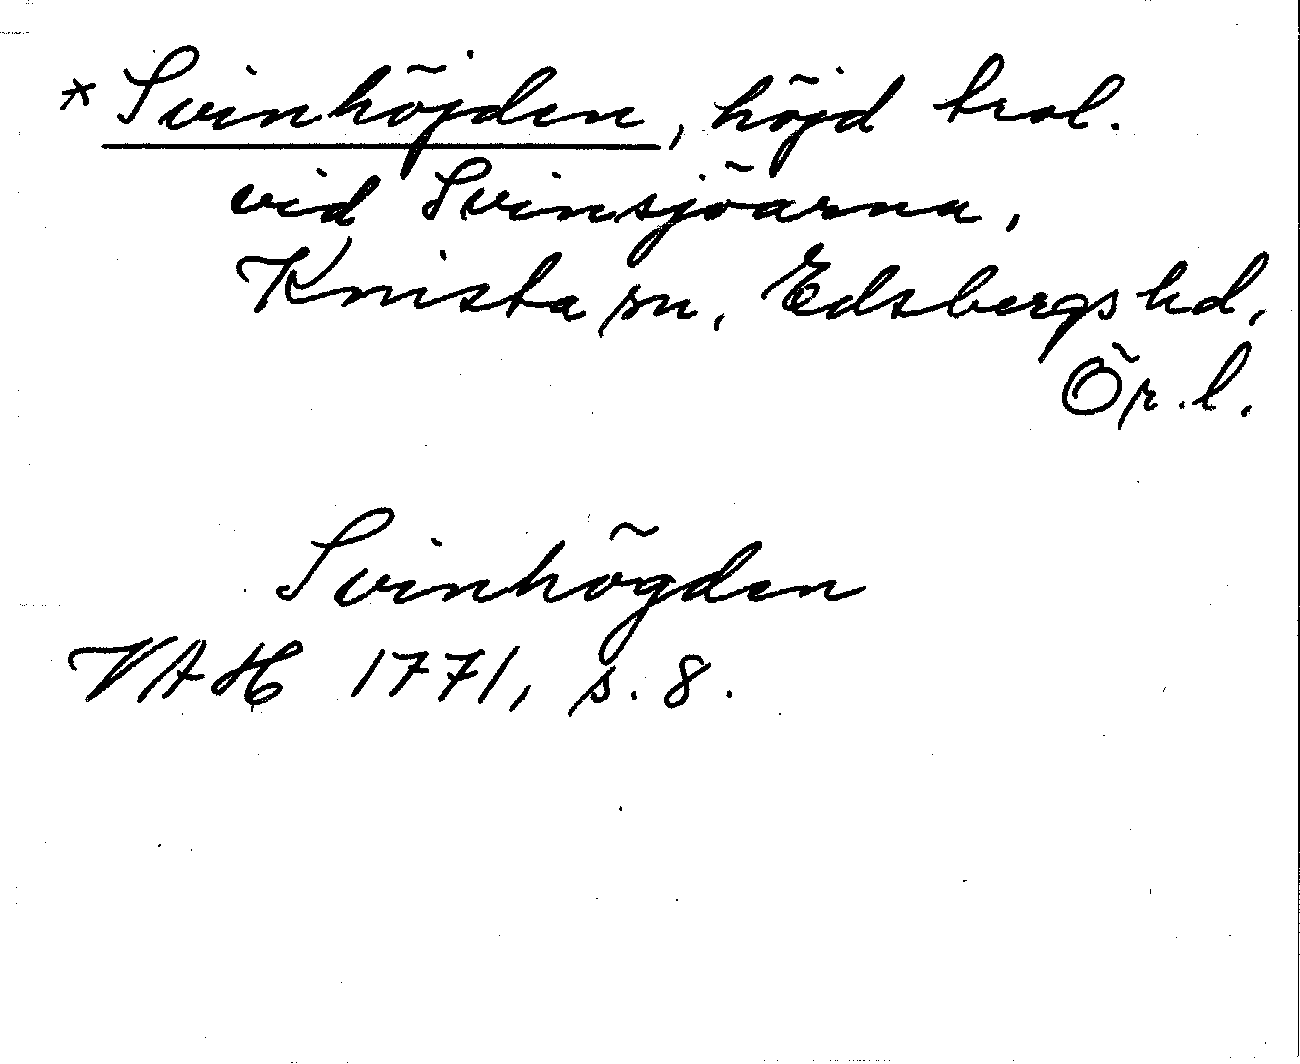 * Svinhöjden, höjd trol.
vid Svinsjöarna,
Knista sn, Edsbergs hd,
Ör. l.
Svinhögden
VAH 1771, s. 8.